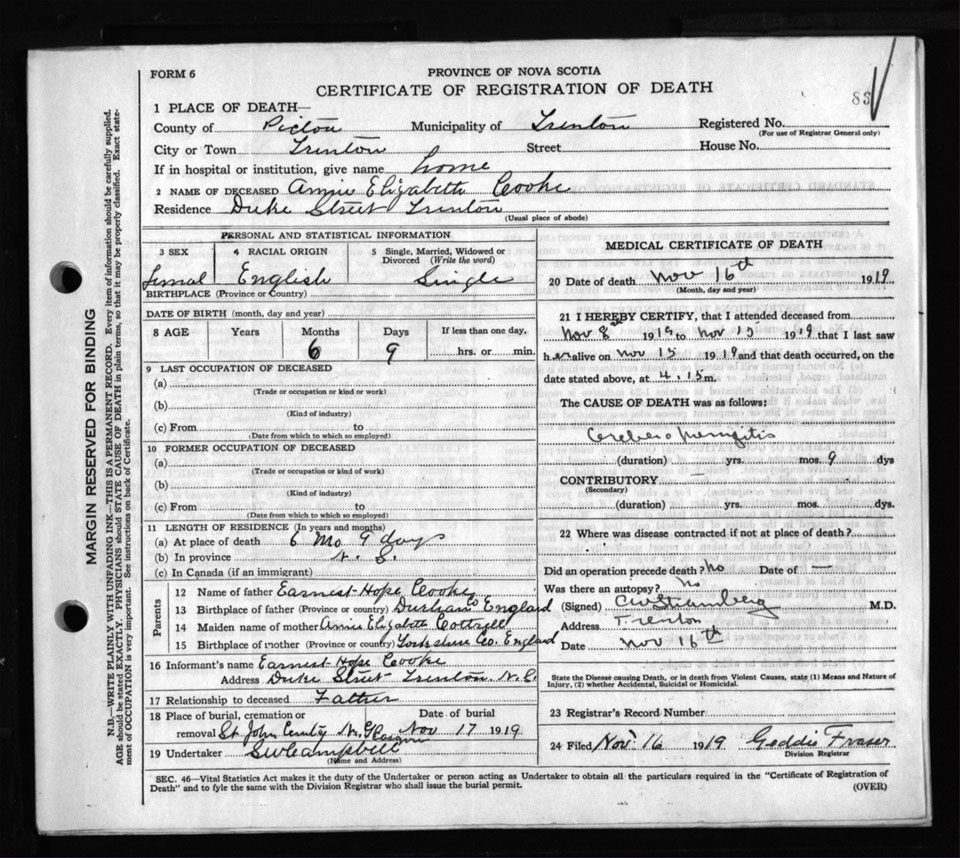 FORM 6
PROVINCE OF NOVA SCOTIA
CERTIFICATE OF REGISTRATION OF DEATH
83
1 PLACE OF DEATH—
County of Pictou Municipality of Trenton Registered No.
(For use of Registrar General only)
City or Town Trenton Street House No.
If in hospital or institution, give name home
2 NAME OF DECEASED Annie Elizabeth Cooke
Residence Duke Street Trenton
(Usual place of abode)
PERSONAL AND STATISTICAL INFORMATION
3 SEX 4 RACIAL ORIGIN 5 Single, Married, Widowed or Divorced (Write the word)
Femal English Single
BIRTHPLACE (Province or Country)
DATE OF BIRTH (month, day and year)
8 AGE Years Months Days If less than one day,
6 9 hrs. or min.
9 LAST OCCUPATION OF DECEASED
(a)
(Trade or occupation or kind or work)
(b)
(Kind of industry)
(c) From to
(Date from which to which so employed)
10 FORMER OCCUPATION OF DECEASED
(a)
(Trade or occupation or kind of work)
(b)
(Kind of industry)
(c) From to
(Date from which to which so employed)
11 LENGTH OF RESIDENCE (In years and months)
(a) At place of death 6 Mo 9 days
(b) In province N. S.
(c) In Canada (if an immigrant)
Parents
12 Name of father Earnest Hope Cooke
13 Birthplace of father (Province or country) Durham Co England
14 Maiden name of mother Annie Elizabeth Cottrell
15 Birthplace of mother (Province or country) Yorkshire Co. England
16 Informant's name Earnest Hope Cooke
Address Duke Street Trenton. N.S.
17 Relationship to deceased Father
18 Place of burial, cremation or Date of burial
removal St. John N. Glasgow Nov 17 1919.
19 Undertaker SW Campbell
(Name and Address)
MEDICAL CERTIFICATE OF DEATH
20 Date of death Nov 16th 1919
(Month, day and year)
21 I HEREBY CERTIFY, that I attended deceased from
Nov 8th 1919 to Nov 15 1919 that I last saw
her alive on Nov 15 1919 and that death occurred, on the
date stated above, at 4.15 m.
The CAUSE OF DEATH was as follows:
Cerebro meningitis
(duration) yrs. mos. 9 dys
CONTRIBUTORY —
(Secondary)
(duration) yrs. mos. dys
22 Where was disease contracted if not at place of death?
Did an operation precede death? No Date of —
Was there an autopsy? No
(Signed) M.D.
Address Trenton
Date Nov 16th
State the Disease causing Death, or in death from Violent Causes, state (1) Means and Nature of Injury, (2) whether Accidental, Suicidal or Homicidal.
23 Registrar's Record Number
24 Filed Nov. 16 1919 Geddie Fraser
Division Registrar
SEC. 46—Vital Statistics Act makes it the duty of the Undertaker or person acting as Undertaker to obtain all the particulars required in the "Certificate of Registration of
Death" and to fyle the same with the Division Registrar who shall issue the burial permit.
(OVER)
MARGIN RESERVED FOR BINDING
N.B.—WRITE PLAINLY WITH UNFADING INK—THIS IS A PERMANENT RECORD. Every item of information should be carefully supplied.
AGE should be stated EXACTLY. PHYSICIANS should STATE CAUSE OF DEATH in plain terms, so that it may be properly classified. Exact state-
ment of OCCUPATION is very important. See instructions on back of Certificate.